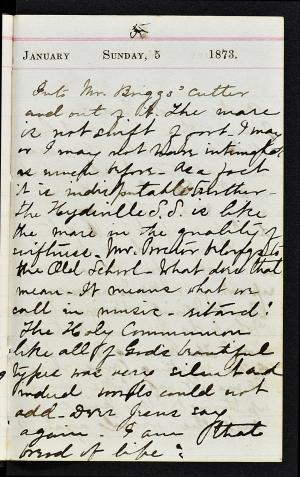 JANUARY SUNDAY, 5 1873.
Into Mr. Briggs' cutter
and out of it. The mare
is not swift of foot. I may
or I may not have intimated
as much before. As a fact
it is indisputable
The Heydville S. S. is like
the mare in the quality of
swiftness. Mr. Proctor belongs to
the Old School. What does that
mean. It means what we
call in music - sitard!
The Holy Communion
like all of God's beautiful
types was very silent and
indeed words could not
add. Does Jesus say
again. I am that
bread of life?